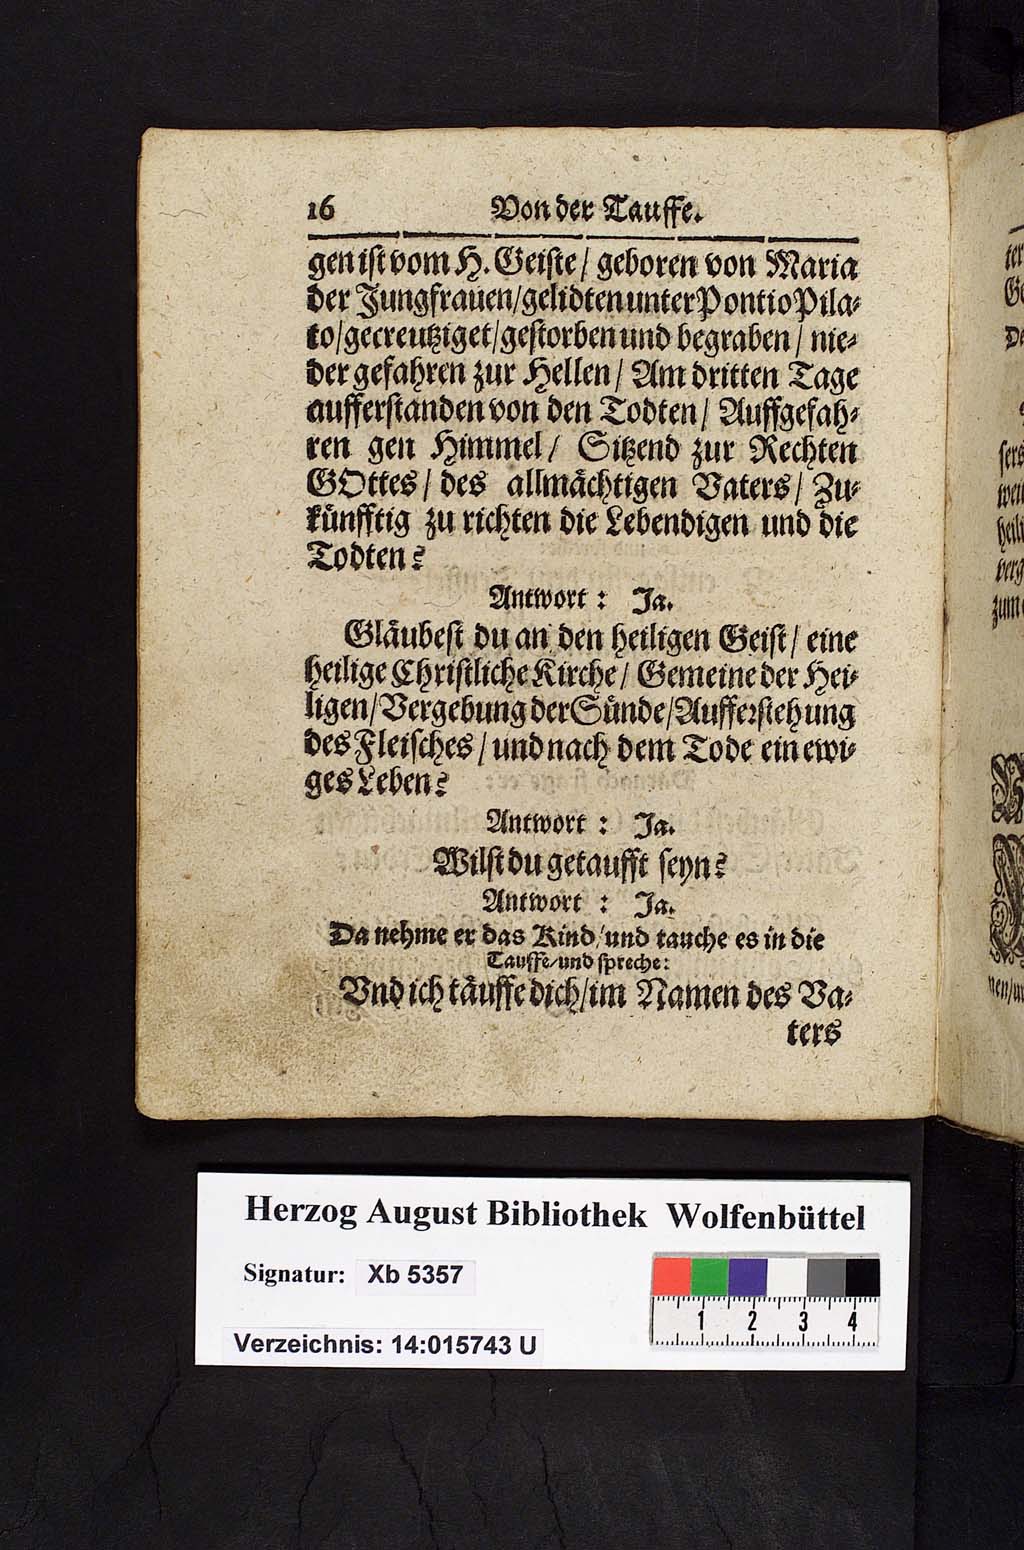 16 Von der Tauffe.
gen ist vom H. Geiste / geboren von Maria
der Jungfrauen/gelidten unter Pontio Pila-
to/gecreutziget/gestorben und begraben / nie-
der gefahren zur Hellen / Am dritten Tage
aufferstanden von den Todten / Auffgefah-
ren gen Himmel / Sitzend zur Rechten
GOttes / des allmächtigen Vaters / Zu-
künfftig zu richten die Lebendigen und die
Todten?
Antwort : Ja.
Gläubest du an den heiligen Geist / eine
heilige Christliche Kirche / Gemeine der Hei-
ligen/Vergebung der Sünde/Aufferstehung
des Fleisches / und nach dem Tode ein ewi-
ges Leben?
Antwort : Ja.
Wilst du getaufft seyn?
Antwort : Ja.
Da nehme er das Kind/und tauche es in die
Tauffe/und spreche:
Vnd ich täuffe dich/im Namen des Va-
ters
Herzog August Bibliothek Wolfenbüttel
Signatur: Xb 5357
Verzeichnis: 14:015743 U
1 2 3 4